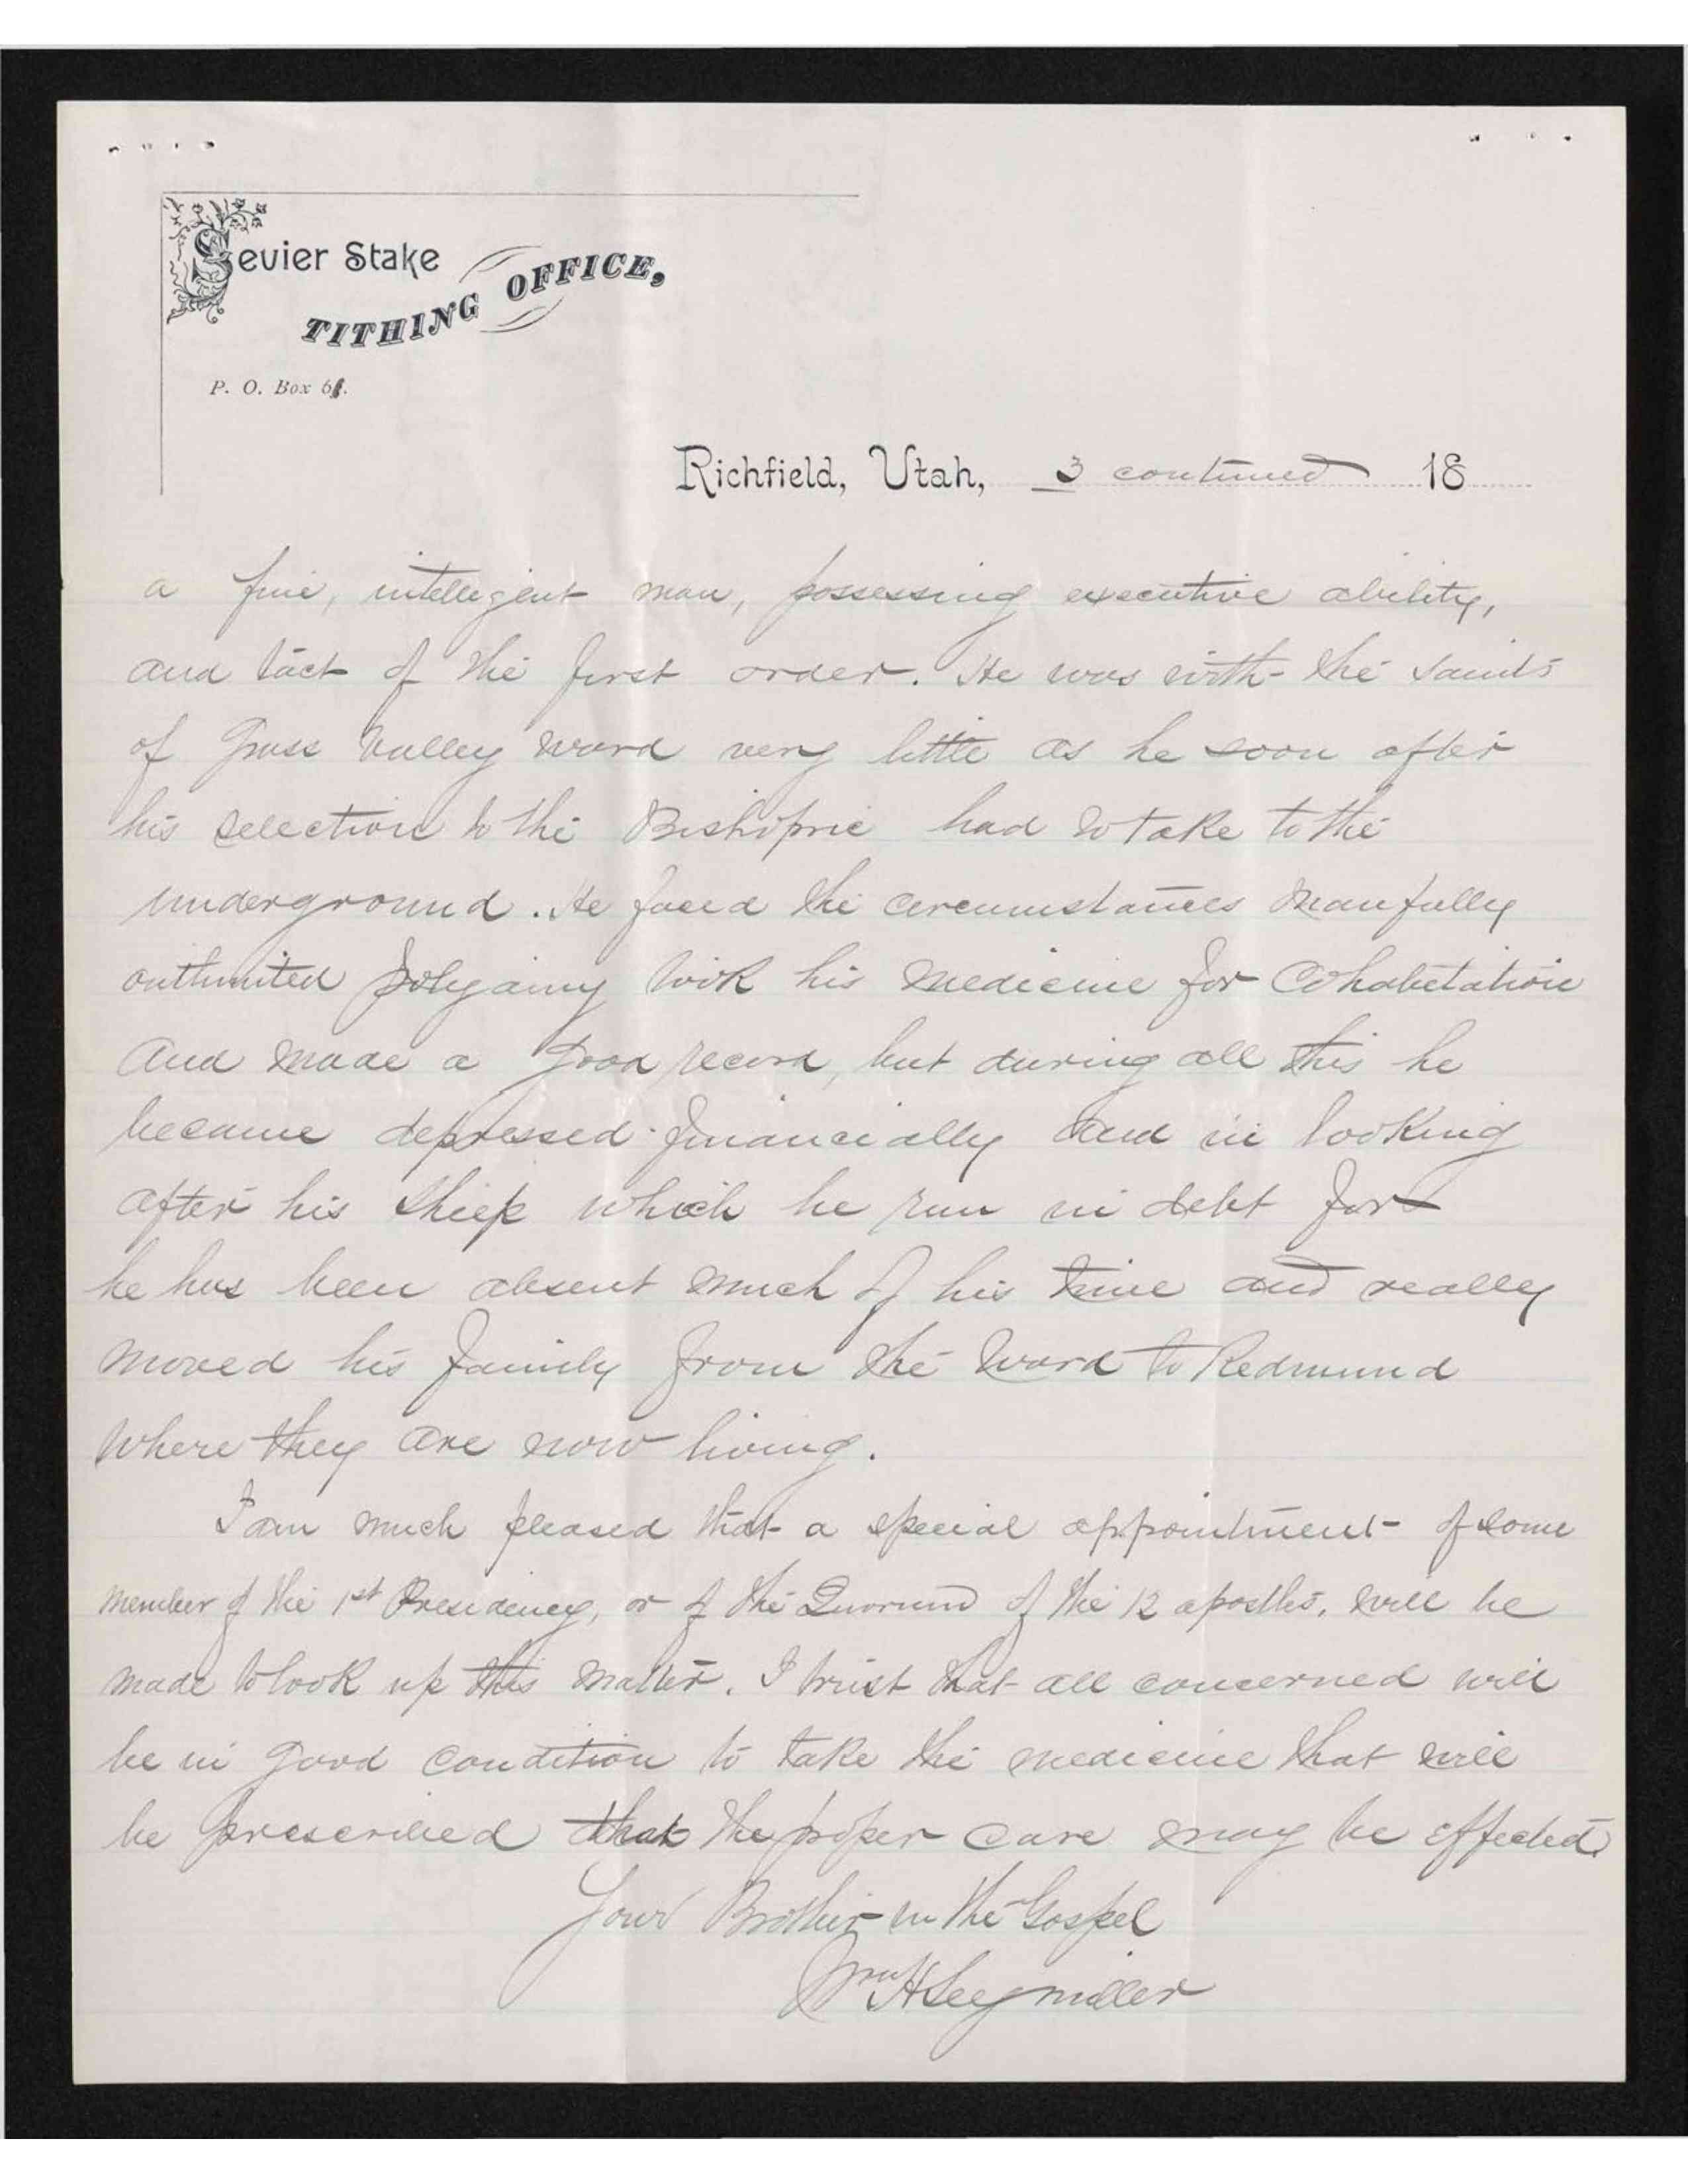 Sevier Stake
TITHING OFFICE,
P. O. Box 6
Richfield, Utah, 3 continued 18
a fine, intelligent man, possessing executive ability,
and tact of the first order. He was with the Saints
of Grass Valley ward very little as he soon after
his selection to the Bishopric had to take to the
underground. He faced the circumstances manfully
outlimited polygamy took his medicine for Cohabitation
and made a good record, but during all this he
became depressed financially and in looking
after his sheep which he run in debt for
he has been absent much of his time and really
moved his family from the ward to Redmund
where they are now living.
I am much pleased that a special appointment of some
member of the 1st Presidency, or of the Quorum of the 12 apostles, will be
made to look up this matter. I trust that all concerned will
be in good condition to take the medicine that will
be prescribed that the proper care may be effected.
Your Brother in the Gospel
Wm H Seegmiller